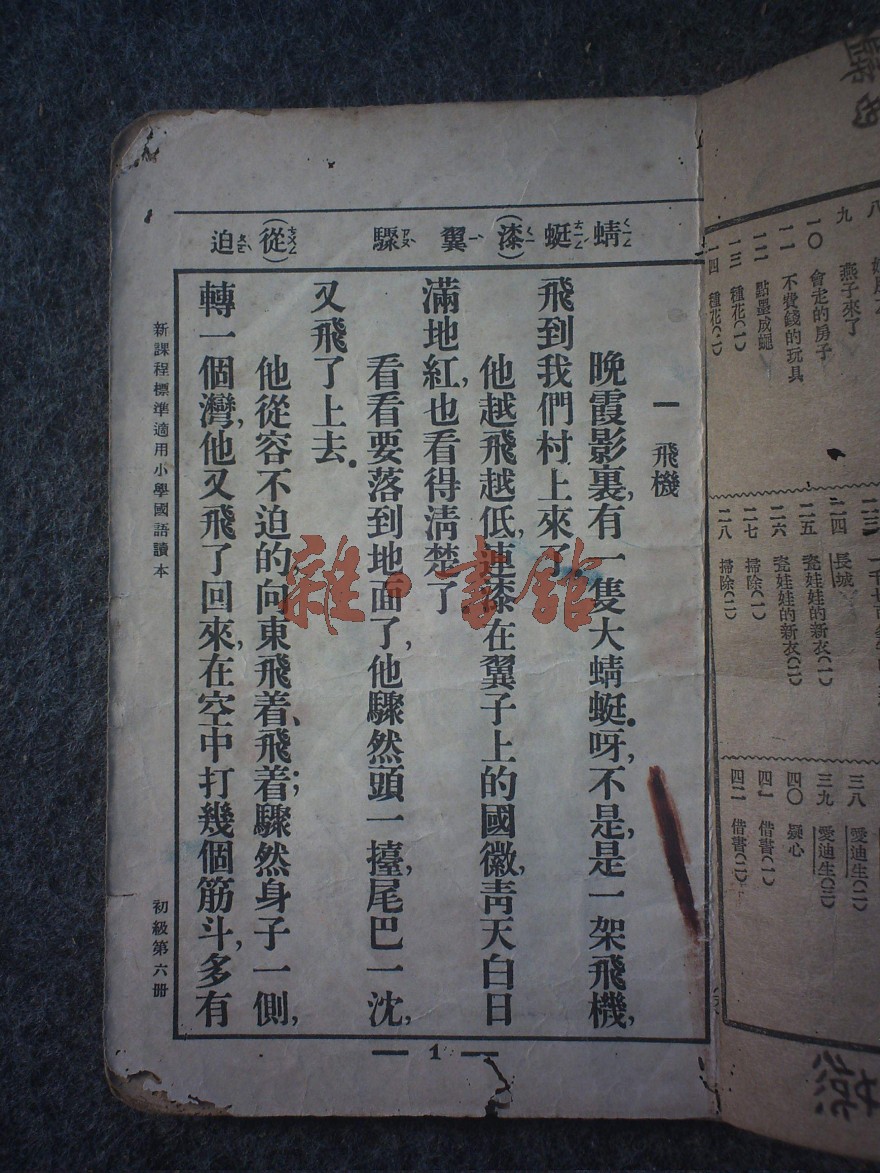 蜻 蜓 (漆) 翼 驟 (從) 迫
一 飛機
晚霞影裏,有一隻大蜻蜓.呀,不是,是一架飛機,
飛到我們村上來了.
他越飛越低,連漆在翼子上的國徽,青天白日
滿地紅,也看得清楚了
看看要落到地面了,他驟然頭一擡,尾巴一沈,
又飛了上去.
他從容不迫的向東飛着、飛着;驟然身子一側,
轉一個灣,他又飛了回來,在空中打幾個筋斗,多有
新課程標準適用小學國語讀本
初級第六册
1
雜·書館
八
九 燕子來了
一〇 會走的房子
一一 不費錢的玩具
一二 點墨成蠅
一三 種花(一)
一四 種花(二)
二三
二四 長城
二五 瓷娃娃的新衣(一)
二六 瓷娃娃的新衣(二)
二七 掃除(一)
二八 掃除(二)
三八 愛迪生(二)
三九 愛迪生(三)
四〇 疑心
四一 借書(一)
四二 借書(二)